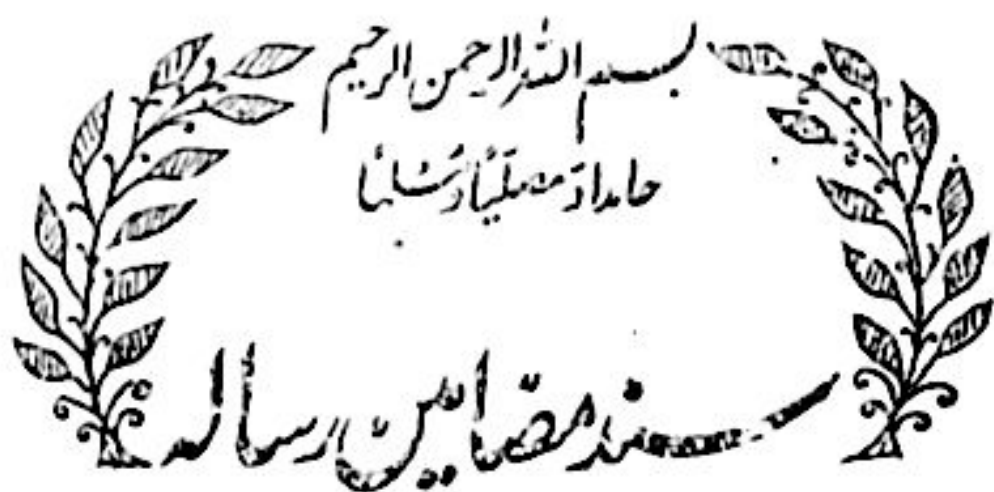 بسم الله الرحمن الرحیم
حامدا و مصلیا و مسلما
سند مضامین رسالہ